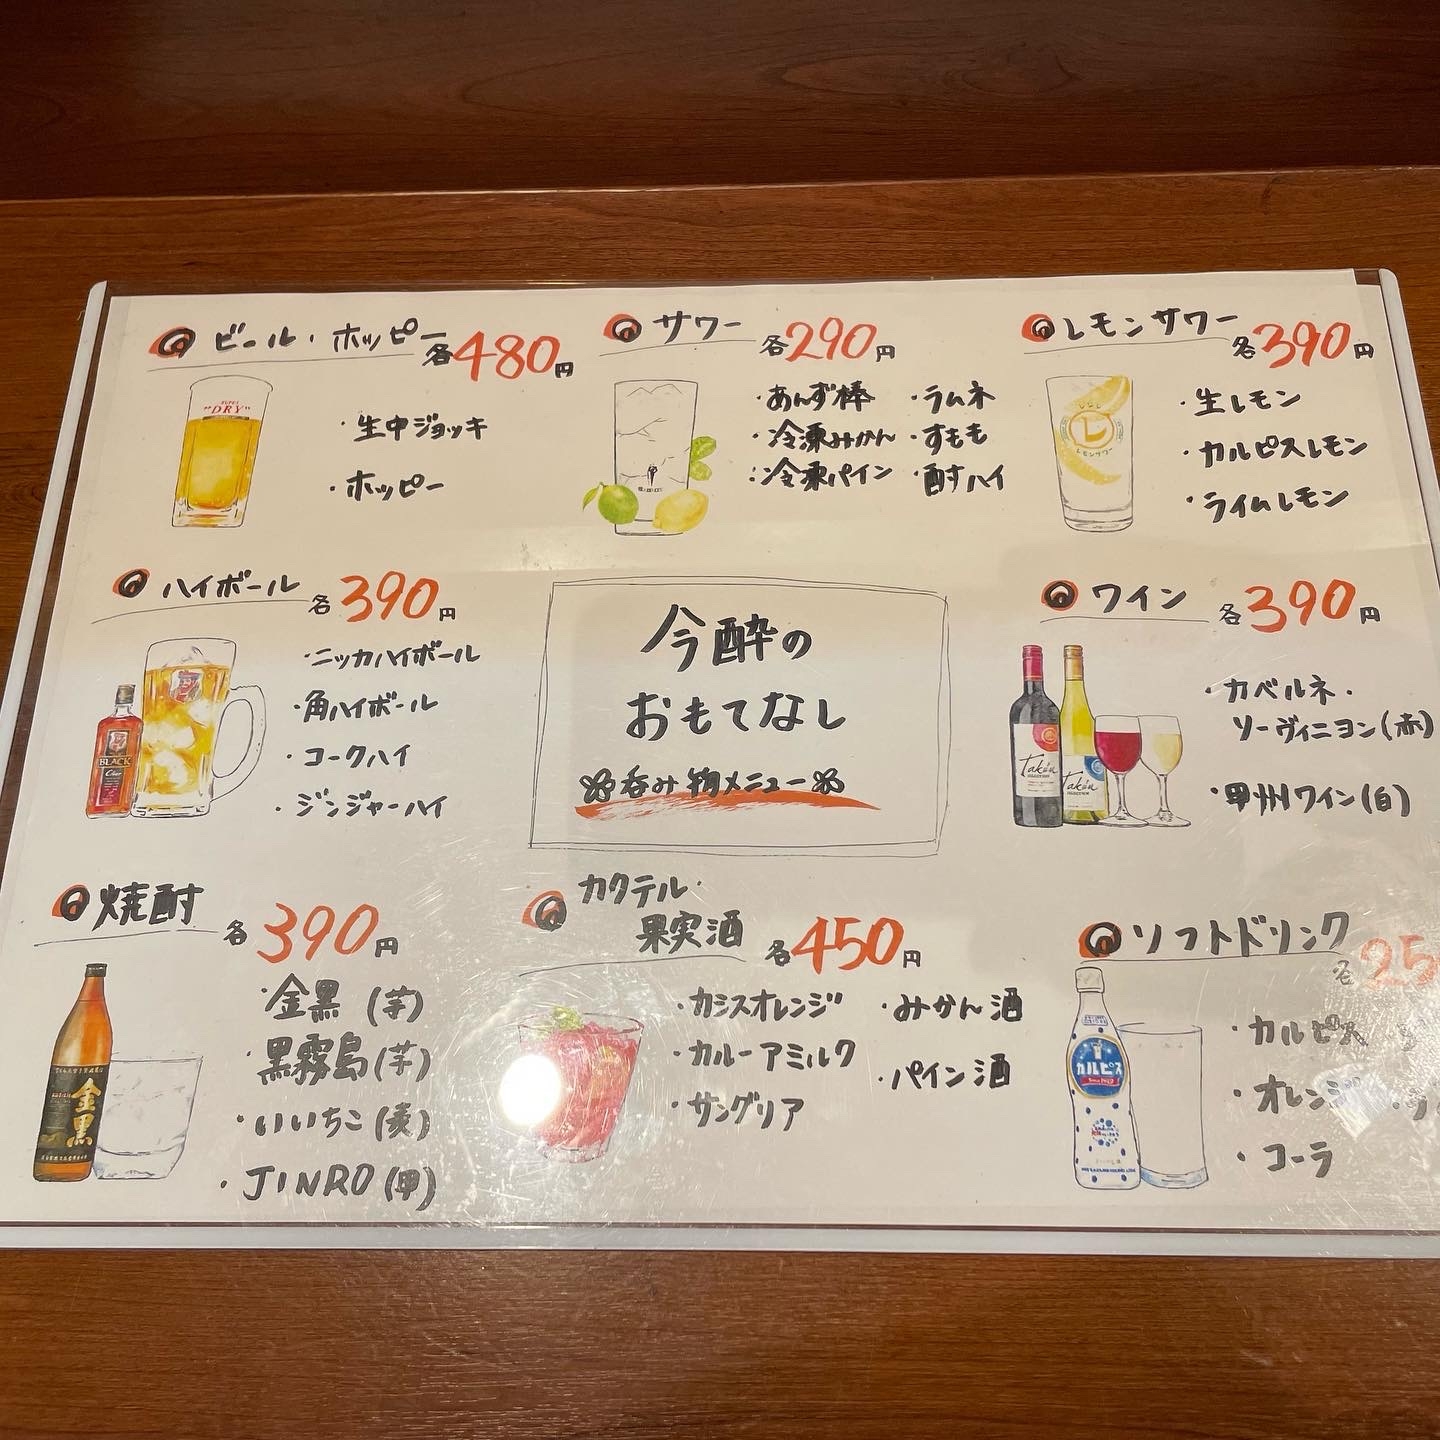 ビール・ホッピー 各480円
・生中ジョッキ
・ホッピー
SUPER
"DRY"
サワー 各290円
・あんず棒
・冷凍みかん
・冷凍パイン
・ラムネ
・すもも
・酎ハイ
レモンサワー 各390円
・生レモン
・カルピスレモン
・ライムレモン
レ
レモンサワー
ハイボール 各390円
・ニッカハイボール
・角ハイボール
・コークハイ
・ジンジャーハイ
BLACK
Clear
今酔の
おもてなし
呑み物メニュー
ワイン 各390円
・カベルネ・
ソーヴィニヨン(赤)
・甲州ワイン(白)
焼酎 各390円
・金黒(芋)
・黒霧島(芋)
・いいちこ(麦)
・JINRO(甲)
金黒
カクテル・
果実酒 各450円
・カシスオレンジ
・カルーアミルク
・サングリア
・みかん酒
・パイン酒
ソフトドリンク
各25
・カルピス
・オレンジ
・コーラ
カルピス